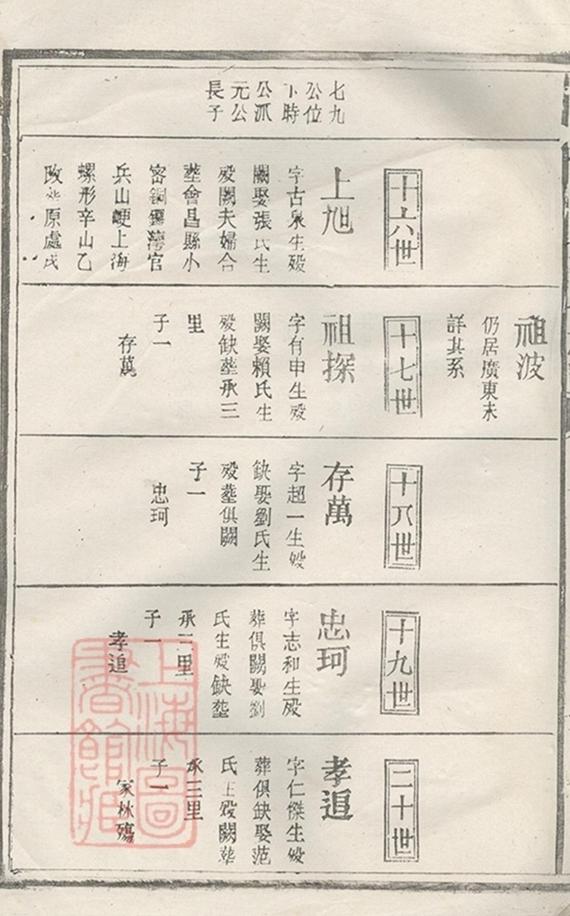 七九
公位
時
公派
元公
長子
十六世
上旭
字古泉生殁
闕娶張氏生
殁闕夫婦合
塟會昌縣小
密銅鑼灣官
兵山崾上海
螺形辛山乙
改塟原處戌
祖波
仍居廣東未
詳其系
十七世
祖探
字有申生殁
闕娶賴氏生
殁缺塟承三
里
子一
存萬
十八世
存萬
字超一生殁
缺娶劉氏生
殁塟俱闕
子一
忠珂
十九世
忠珂
字志和生殁
葬俱闕娶劉
氏生殁缺塟
承三里
子一
孝追
二十世
孝追
字仁傑生殁
葬俱缺娶范
氏生殁闕塟
承三里
子一
家林殤
上海圖
書館藏